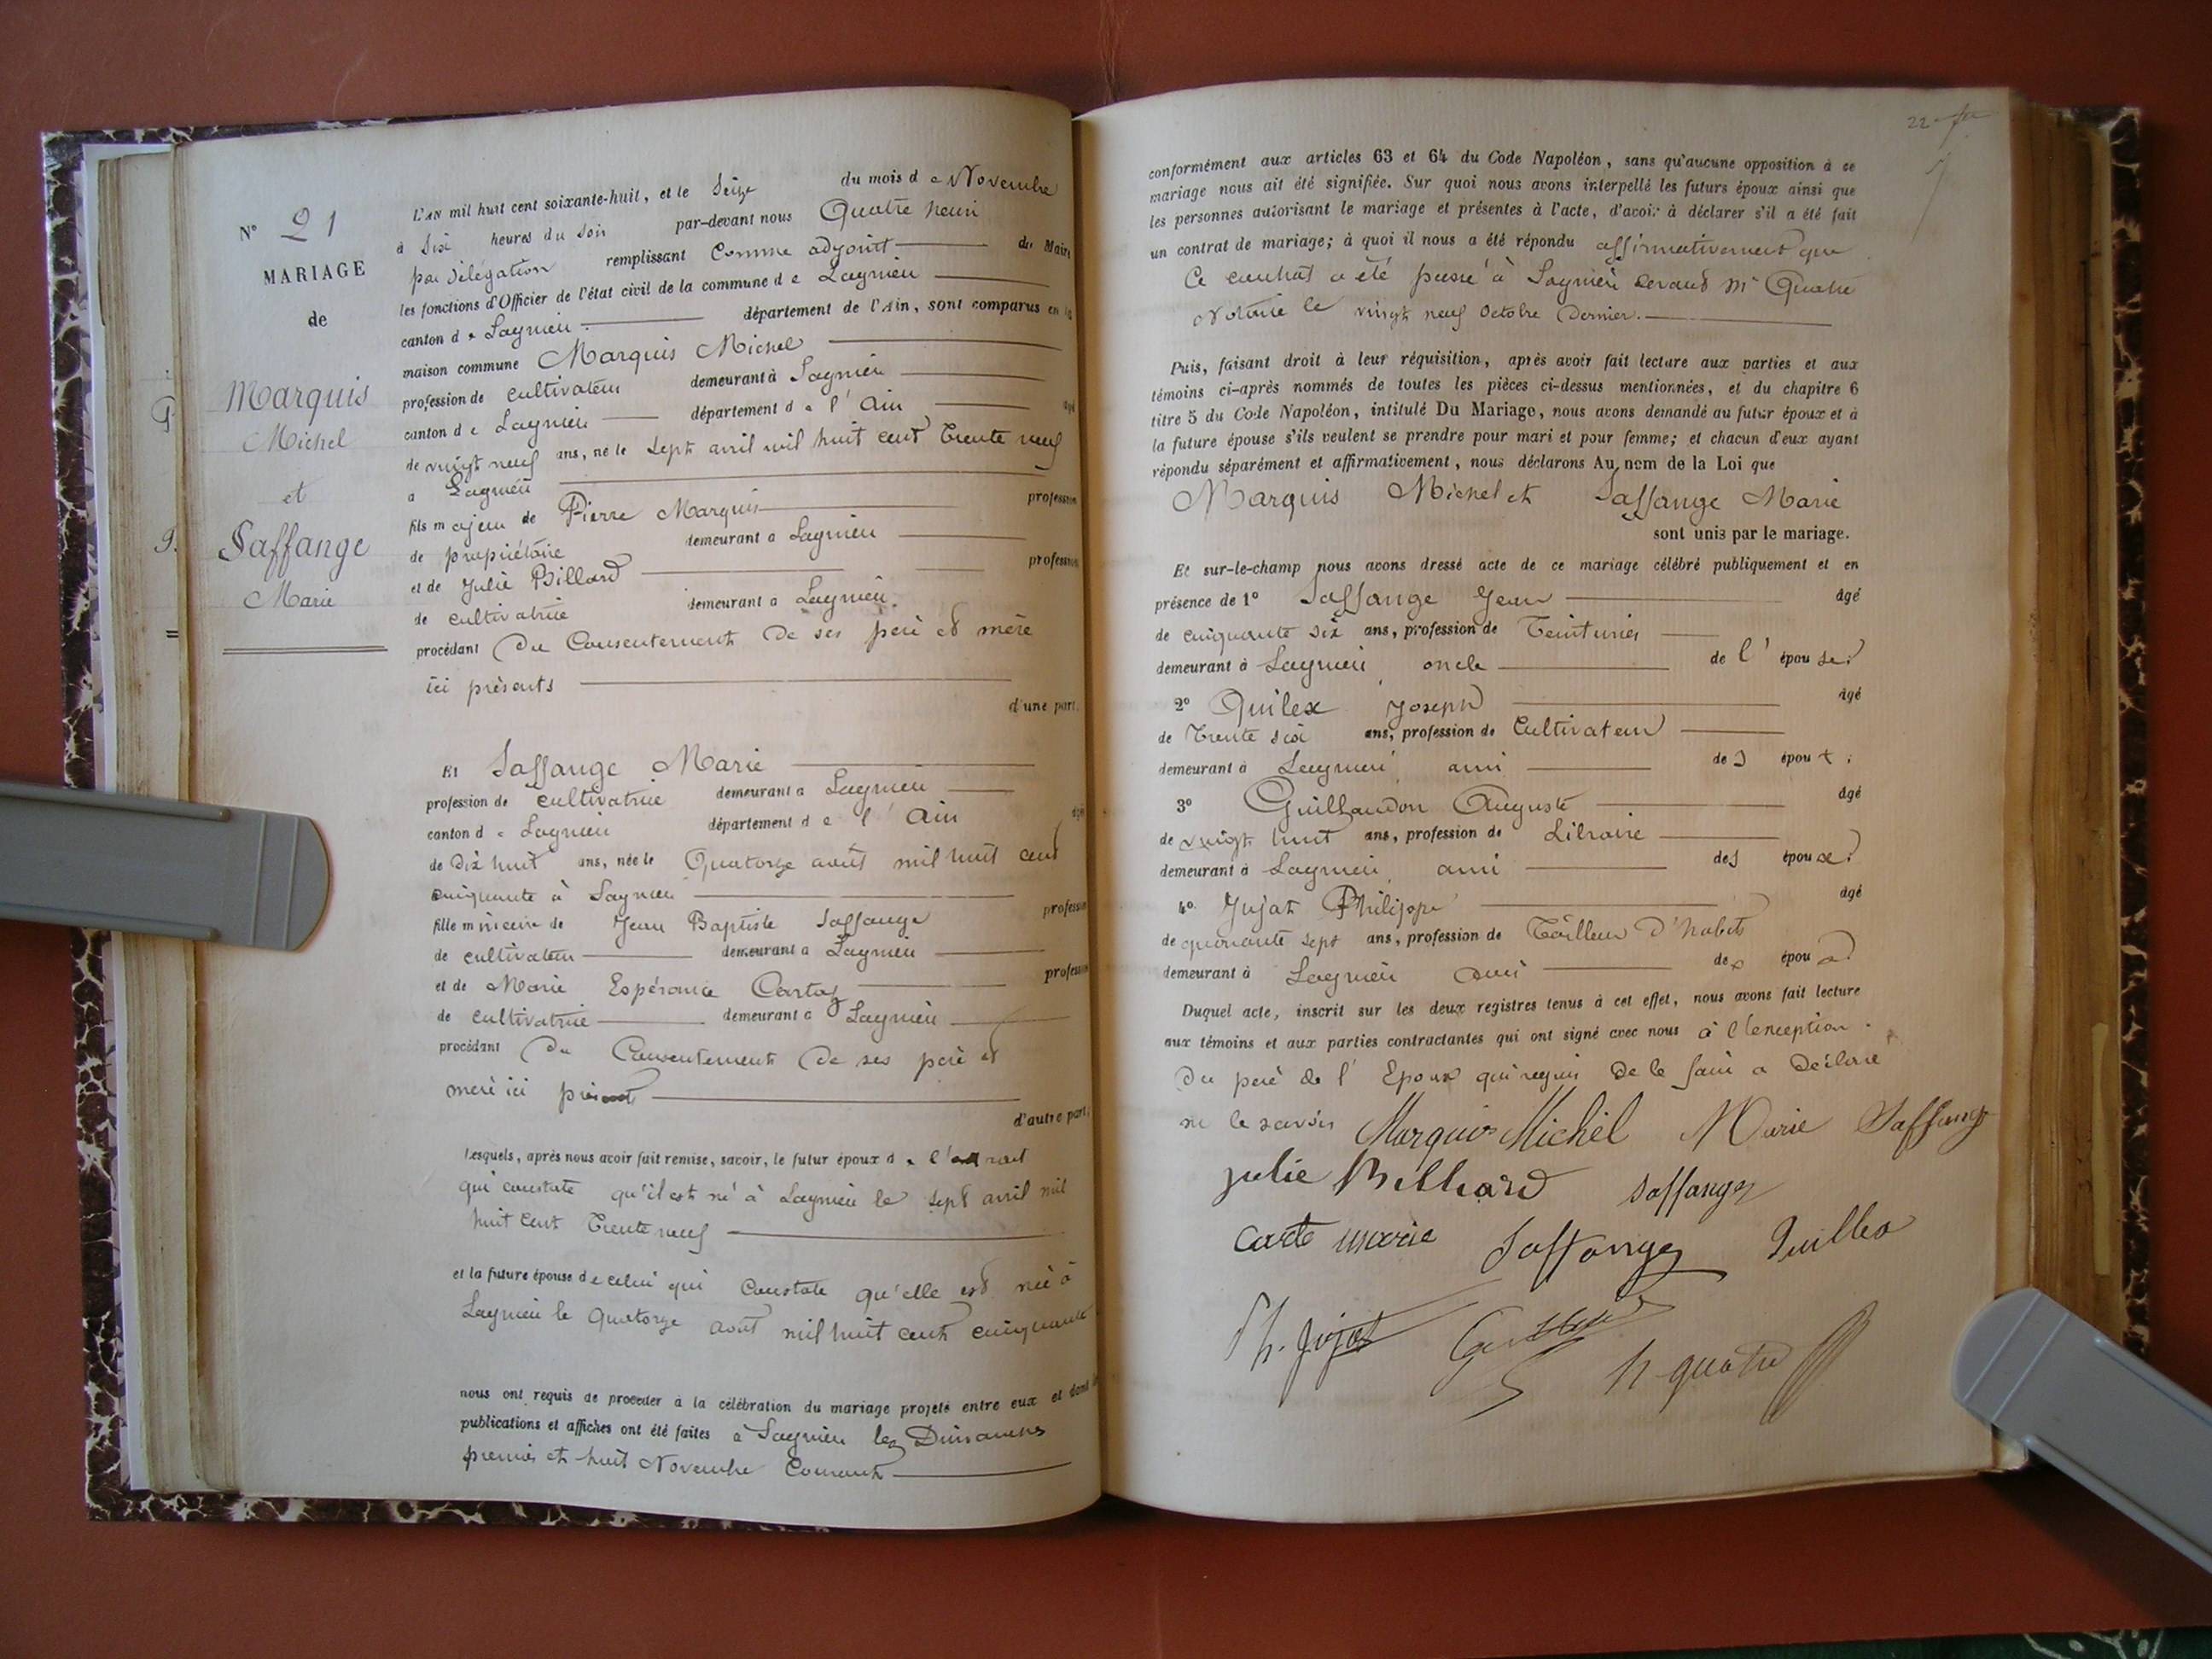 N° 21
MARIAGE
de
Marquis
Michel
et
Saffange
Marie
L'AN mil huit cent soixante-huit, et le Seize du mois de Novembre
à Six heures du Soir par-devant nous Quatre henri
par délégation remplissant Comme adjoint du Maire
les fonctions d'Officier de l'état civil de la commune de Lagnieu
canton de Lagnieu département de l'Ain, sont comparus en la
maison commune Marquis Michel
profession de cultivateur demeurant à Lagnieu
canton de Lagnieu département de l'Ain âgé
de vingt neuf ans, né le Sept avril mil huit cent Trente neuf
à Lagnieu
fils majeur de Pierre Marquis profession
de propriétaire demeurant à Lagnieu
et de Julie Billard profession
de cultivatrice demeurant à Lagnieu
procédant Du Consentement De ses père et mère
ici présents
d'une part.
Et Saffange Marie
profession de cultivatrice demeurant à Lagnieu
canton de Lagnieu département de l'Ain âgé
de Dix huit ans, née le Quatorze août mil huit cent
cinquante à Lagnieu
fille mineure de Jean Baptiste Saffange profession
de cultivateur demeurant à Lagnieu
et de Marie Espérance Cartaz profession
de cultivatrice demeurant à Lagnieu
procédant Du Consentement De ses père et
mère ici présents
d'autre part.
Lesquels, après nous avoir fait remise, savoir, le futur époux de l'extrait
qui constate qu'il est né à Lagnieu le Sept avril mil
huit cent Trente neuf
et la future épouse de celui qui Constate qu'elle est née à
Lagnieu le Quatorze août mil huit cent cinquante
nous ont requis de procéder à la célébration du mariage projeté entre eux et dont les
publications et affiches ont été faites à Lagnieu les Dimanches
premier et huit Novembre Courant
22
conformément aux articles 63 et 64 du Code Napoléon, sans qu'aucune opposition à ce
mariage nous ait été signifiée. Sur quoi nous avons interpellé les futurs époux ainsi que
les personnes autorisant le mariage et présentes à l'acte, d'avoir à déclarer s'il a été fait
un contrat de mariage; à quoi il nous a été répondu affirmativement que
Ce contrat a été passé à Lagnieu devant Me Quatre
Notaire le vingt neuf Octobre Dernier.
Puis, faisant droit à leur réquisition, après avoir fait lecture aux parties et aux
témoins ci-après nommés de toutes les pièces ci-dessus mentionnées, et du chapitre 6
titre 5 du Code Napoléon, intitulé Du Mariage, nous avons demandé au futur époux et à
la future épouse s'ils veulent se prendre pour mari et pour femme; et chacun d'eux ayant
répondu séparément et affirmativement, nous déclarons Au nom de la Loi que
Marquis Michel et Saffange Marie
sont unis par le mariage.
Et sur-le-champ nous avons dressé acte de ce mariage célébré publiquement et en
présence de 1° Saffange Jean âgé
de cinquante six ans, profession de Teinturier
demeurant à Lagnieu oncle de l'épouse;
2° Quilex Joseph âgé
de Trente six ans, profession de Cultivateur
demeurant à Lagnieu ami des époux;
3° Guillaudon Auguste âgé
de vingt huit ans, profession de Libraire
demeurant à Lagnieu, ami des époux;
4° Jujat Philippe âgé
de quarante sept ans, profession de Tailleur D'habits
demeurant à Lagnieu ami des époux
Duquel acte, inscrit sur les deux registres tenus à cet effet, nous avons fait lecture
aux témoins et aux parties contractantes qui ont signé avec nous à l'exception
Du père de l'Epoux qui requis De le faire a Déclaré
ne le savoir Marquis Michel Marie Saffange
julie Billiard Saffange
Carte marie Saffange Quillex
Ph. Jujat h quatre